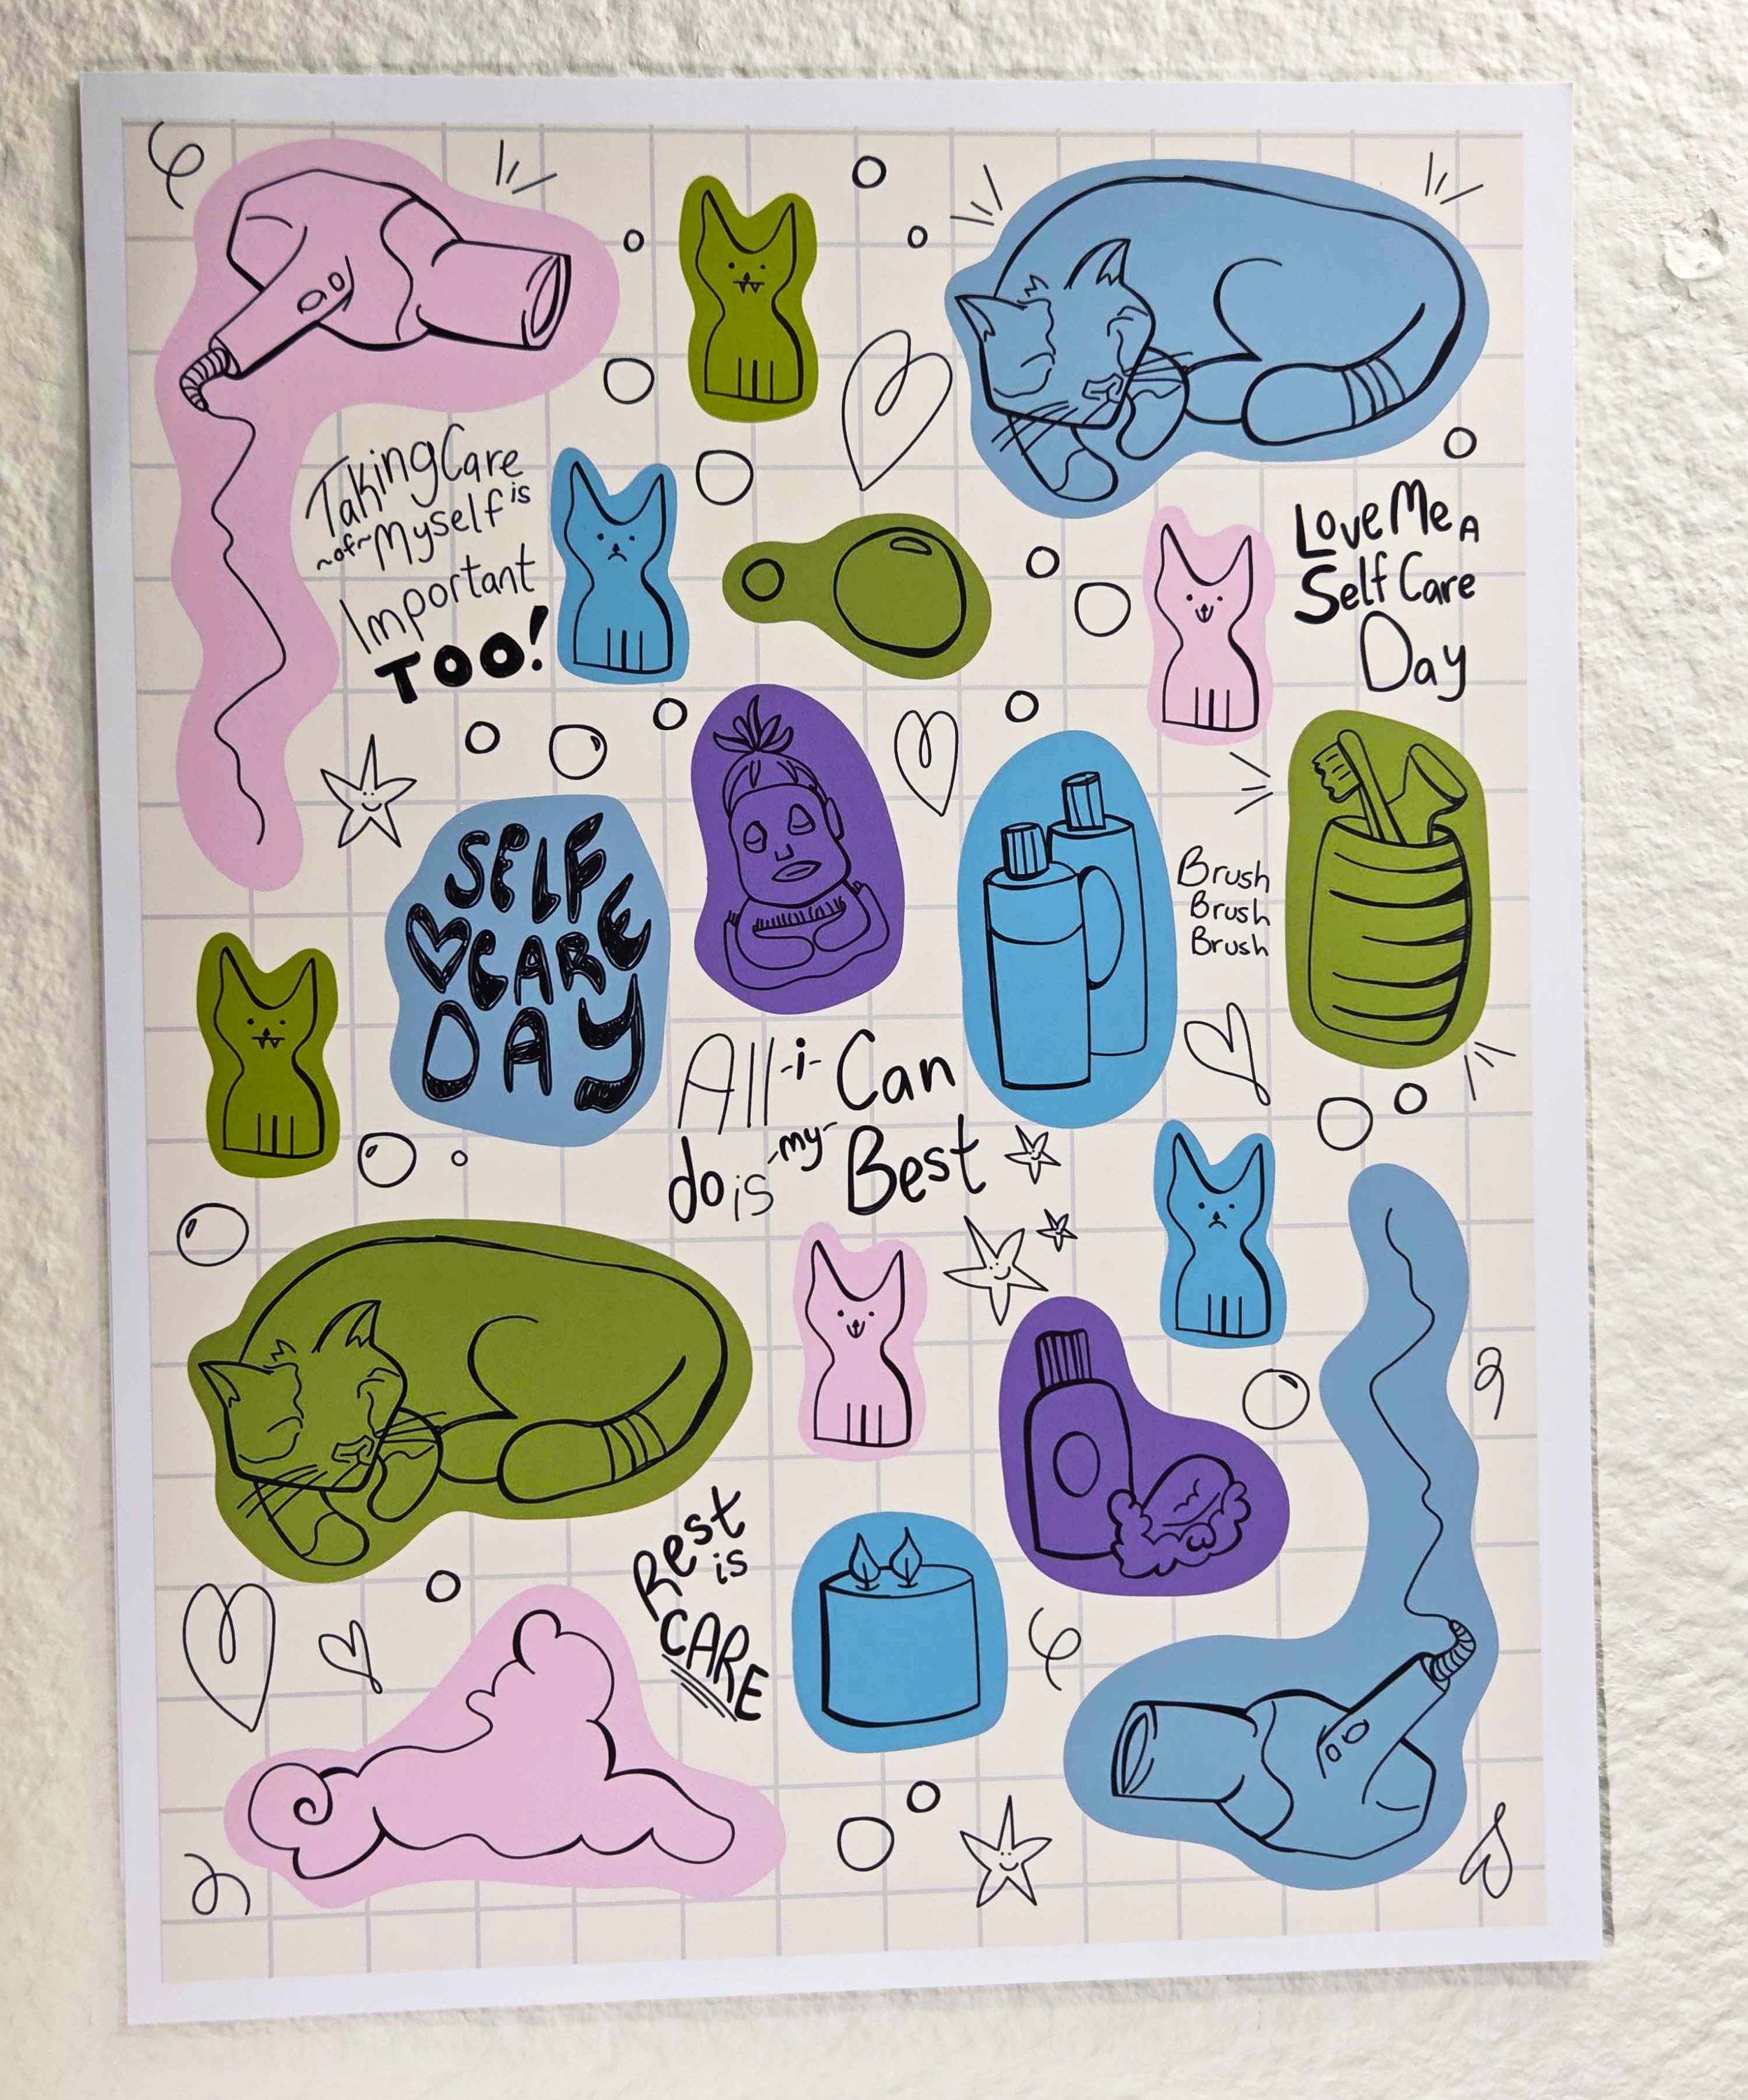 Taking Care
~of~ Myself is
Important
TOO!
Love Me A
Self Care
Day
SELF
CARE
DAY
Brush
Brush
Brush
All -i- Can
do is -my- Best
Rest
is
CARE